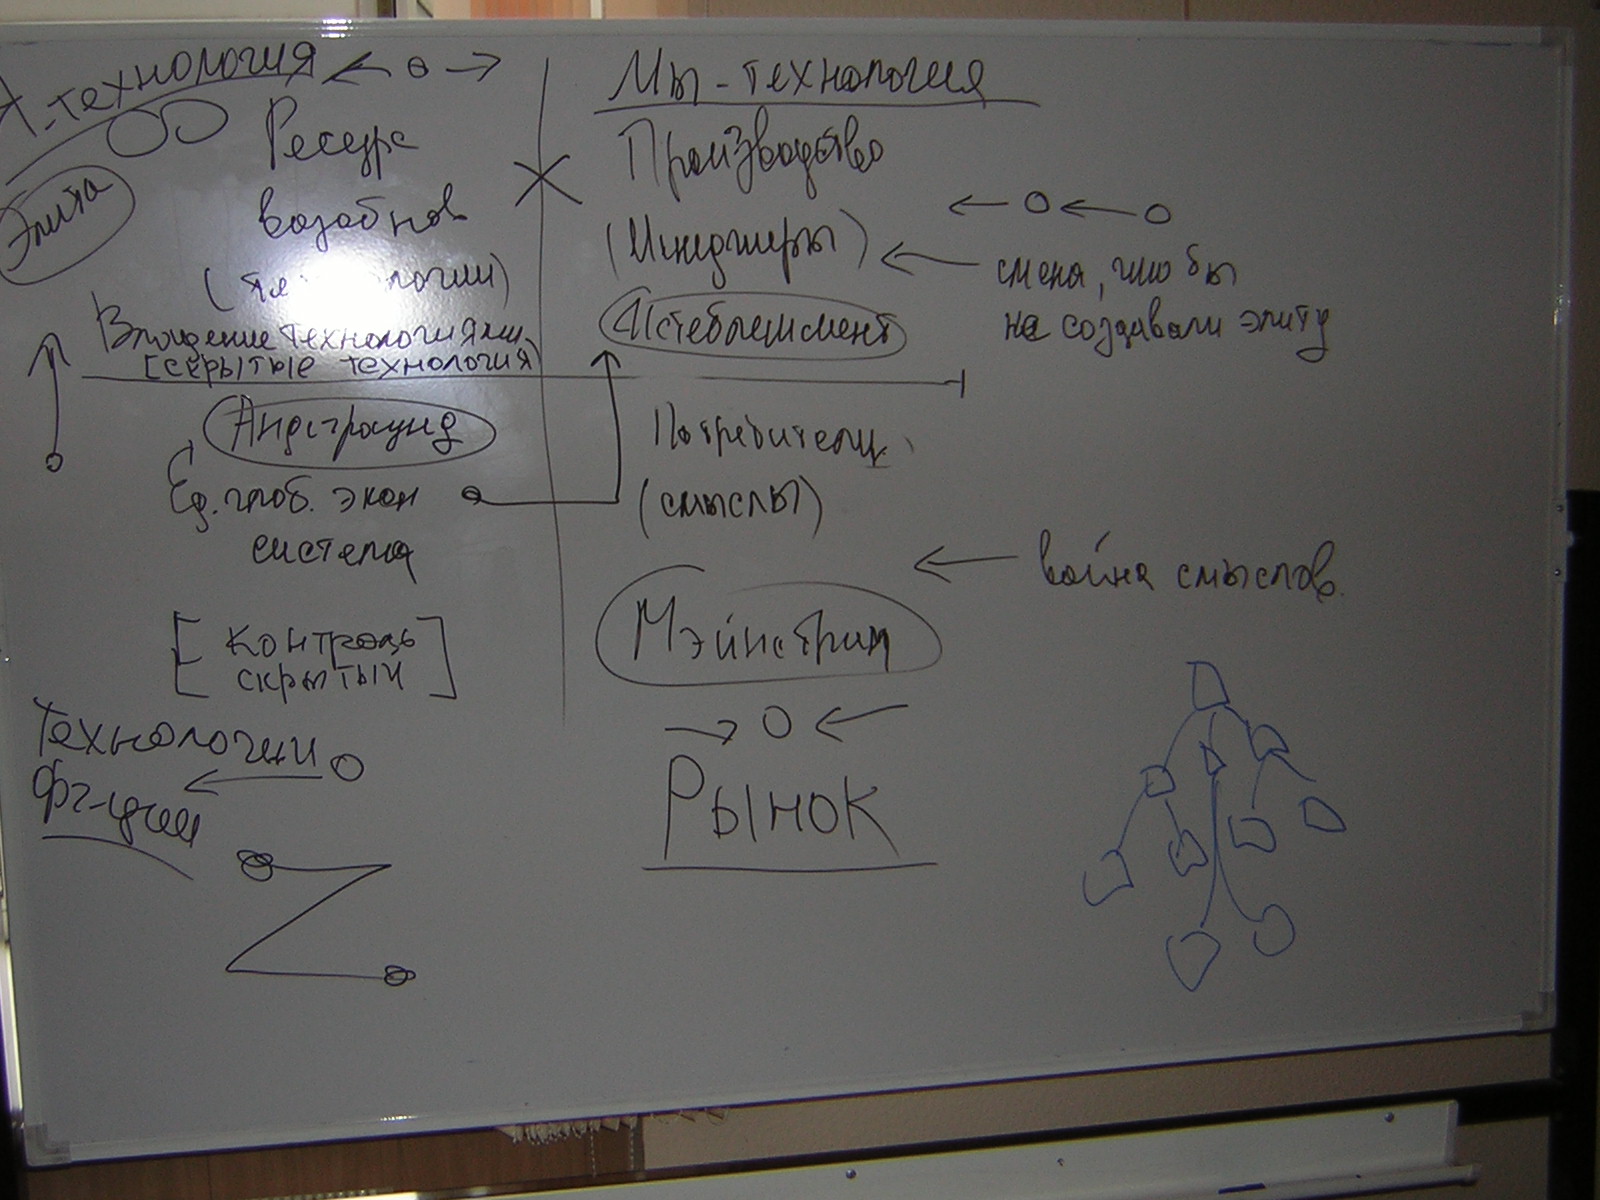 -технология
Ресурс
возобнов
Элита
(те логии)
технологиями
[скрытые технология]
Андеграунд
Ед. глоб. экон
система
[контроль
скрытый]
Технологии
Мы - технология
Производство
(Менеджеры)
Истеблешмент
смена, что бы
не создавали элиту
Потребители
(смыслы)
война смыслов.
Мэйнстрим
Рынок